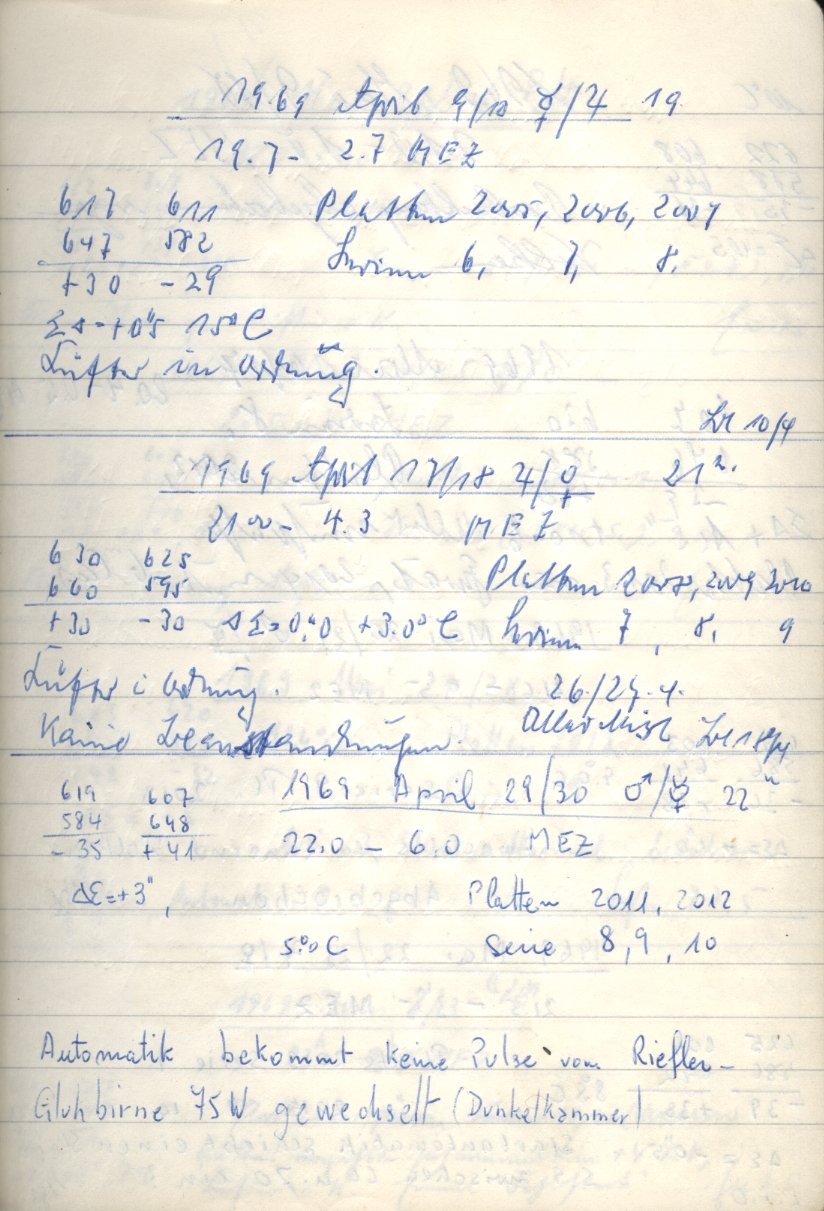 1969 April 9/10 ☿/♃ 19
19.7 - 2.7 MEZ
617 611 Platten 2005, 2006, 2007
647 582 Serien 6, 7, 8.
+30 -29
ΣΔ=+0"5 15°C
Lüfter in Ordnung.
10/4
1969 April 17/18 ♃/♀ 21
21.00 - 4.3 MEZ
630 625 Platten 2008, 2009 2010
660 595
+30 -30 ΔΣ=0"0 +3.0°C Serien 7, 8, 9
Lüfter i Ordnung. 26./27.4.
Keine Beanstandungen. 18/4
619 607 1969 April 29/30 ♂/☿ 22
584 648
-35 +41 22.0 - 6.0 MEZ
ΔΣ=+3", Platten 2011, 2012
5.0°C Serie 8, 9, 10
Automatik bekommt keine Pulse vom Riefler-
Gluhbirne 75W gewechselt (Dunkelkammer)